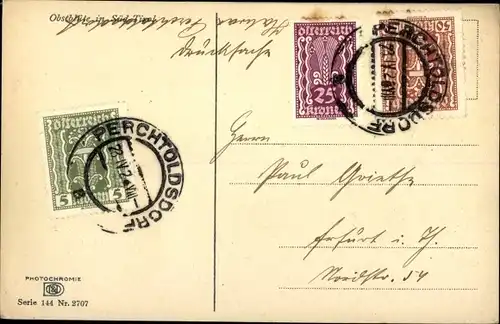 Obstblüte in Süd-Tirol
Drucksache
Österreich
25
Kronen
Österreich
50
PERCHTOLDSDORF
Österreich
5 5
PERCHTOLDSDORF
Herrn
Paul Goethe
Erfurt i. Th.
Nordstr. 54
PHOTOCHROMIE
Serie 144 Nr. 2707